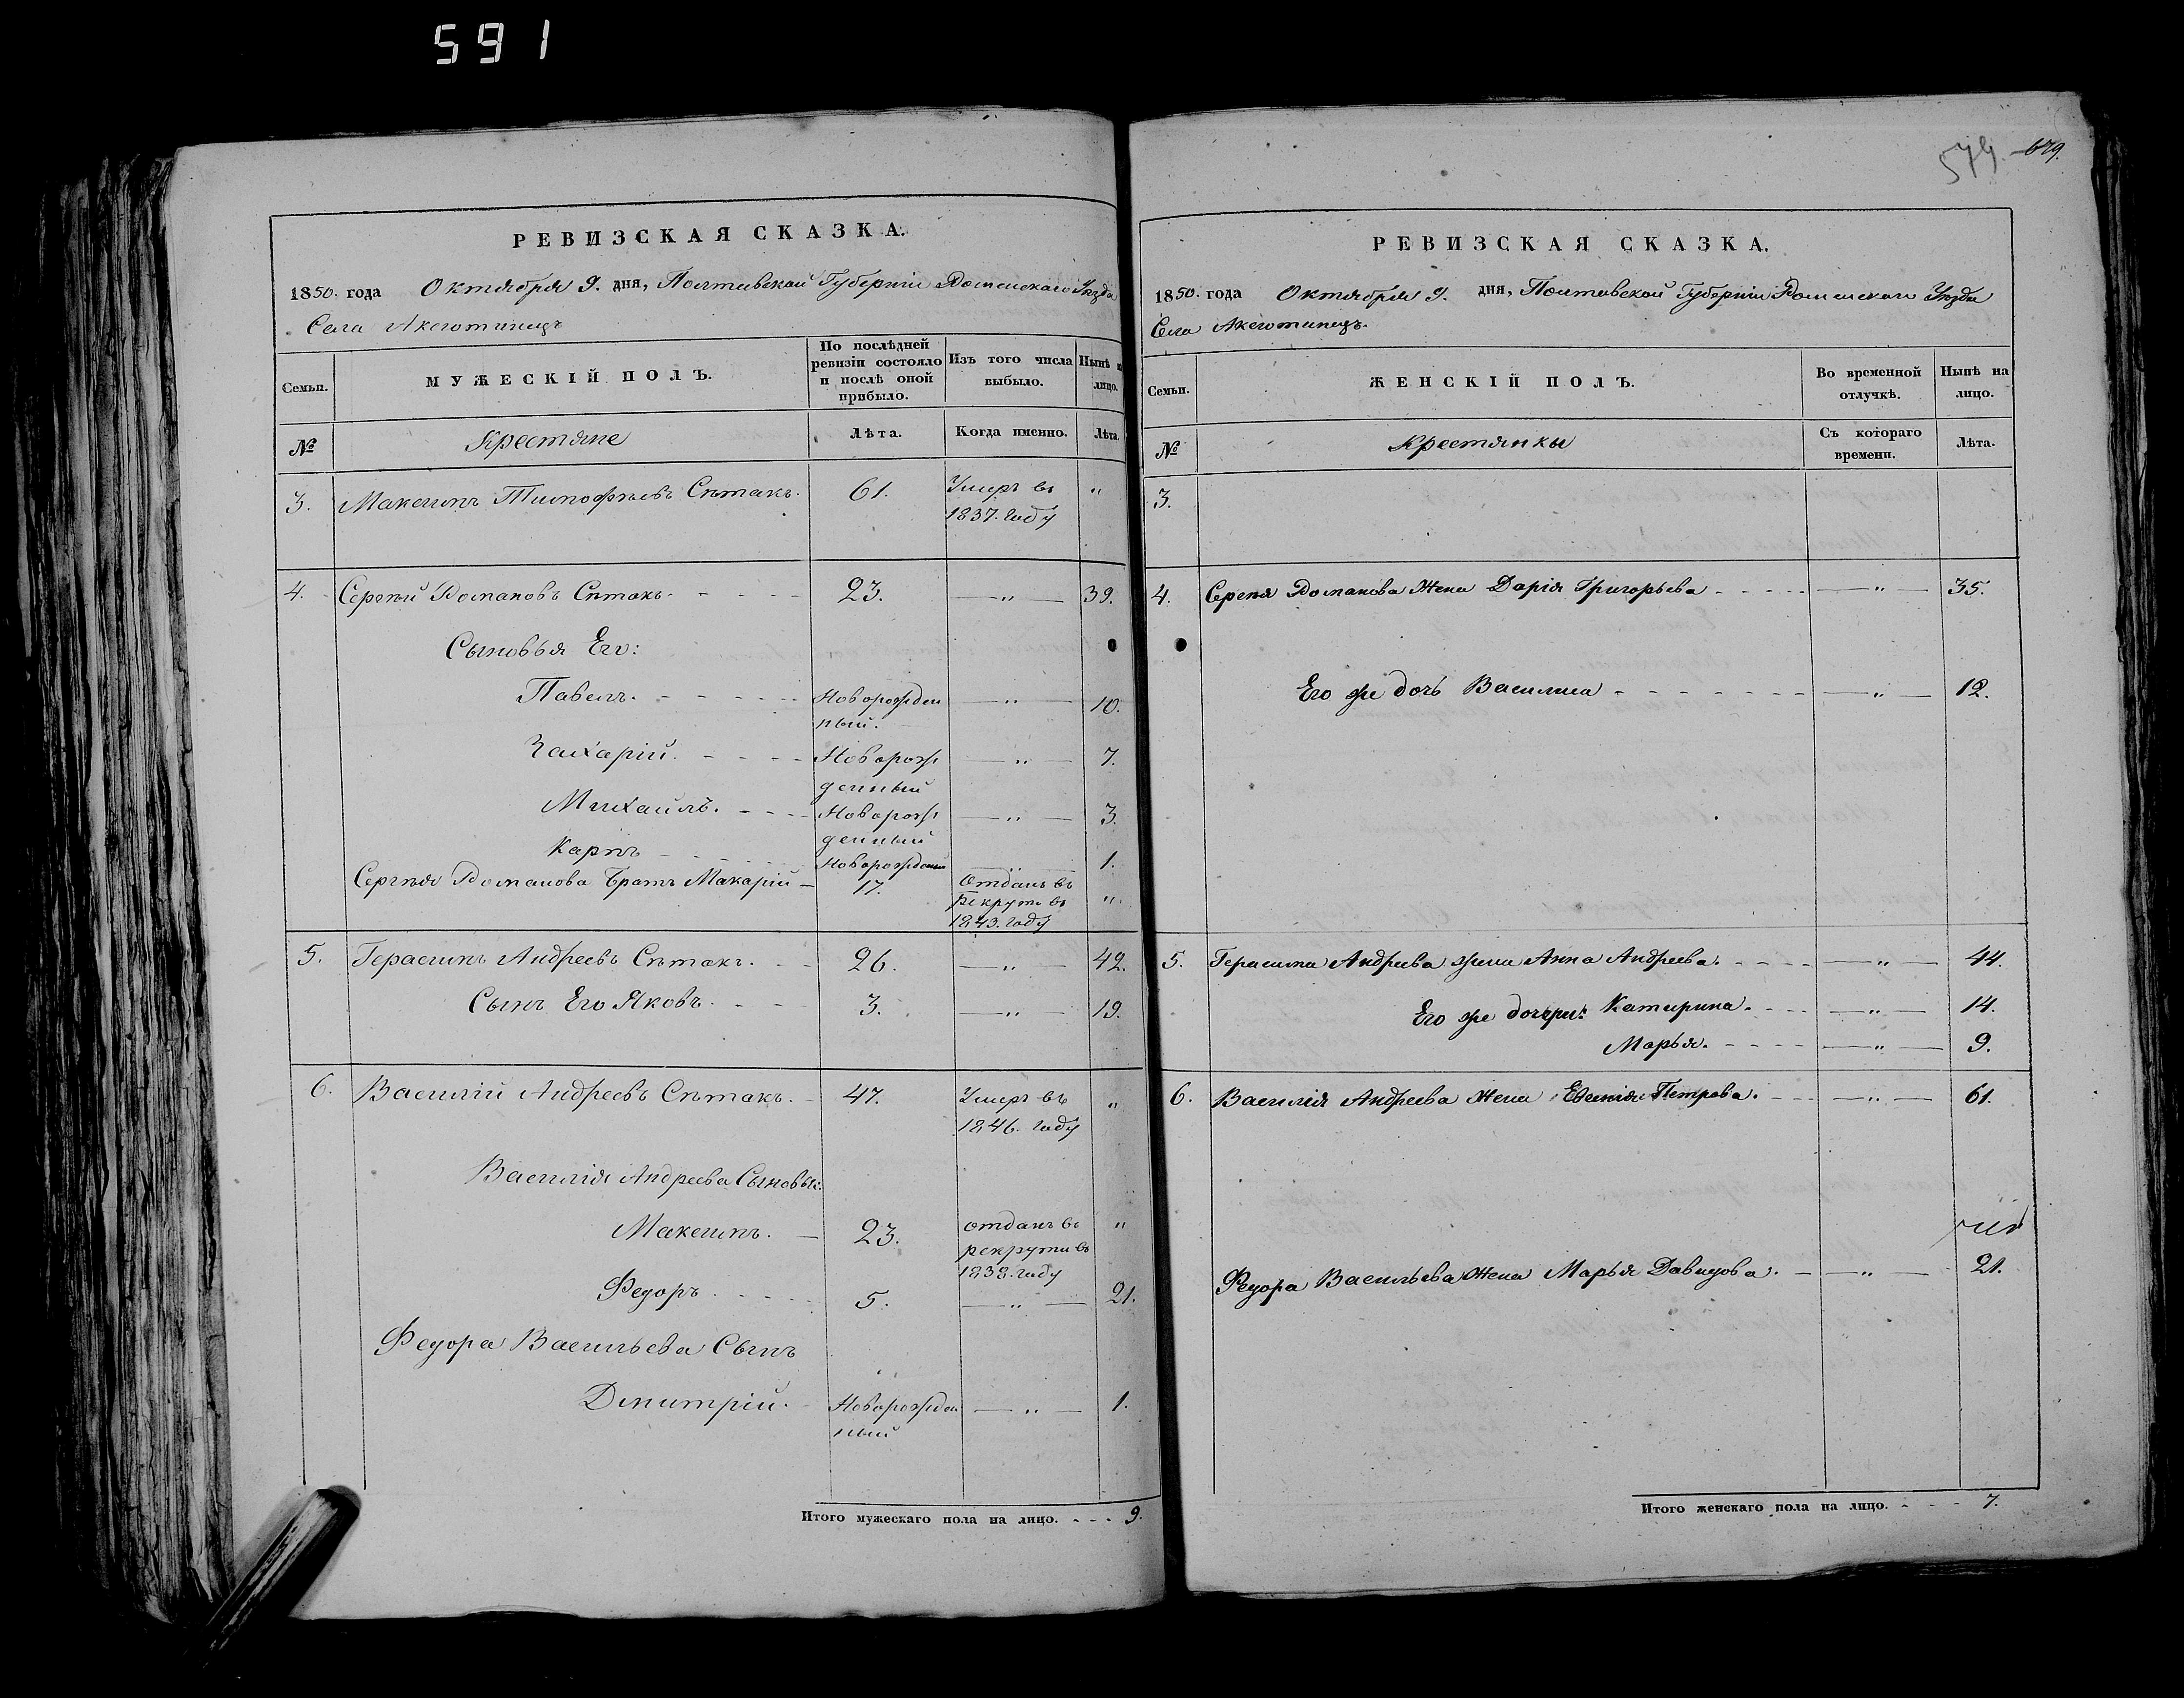 591
РЕВИЗСКАЯ СКАЗКА.
1850. года Октября 9. дня, Полтавской Губерніи Роменскаго Уѣзда
Села Аксютинецъ
Семьи.
МУЖЕСКІЙ ПОЛЪ.
По послѣдней ревизіи состояло и послѣ оной прибыло.
Изъ того числа выбыло.
Нынѣ н лицо.
№
Крестяне
Лѣта.
Когда именно.
Лѣта.
3. Максимъ Тимофѣевъ Сѣтакъ. 61. Умеръ въ "
1837. году
4. Сергѣй Романовъ Сѣтакъ. 23. " 39.
Сыновья Его:
Павелъ. Новорожден " 10.
ный.
Захарій. Новорож " 7.
денный
Михаилъ. Новорож " 3.
денный
Карпъ Новорожденый " 1.
Сергѣя Романова Братъ Макарій 17. Отданъ въ "
рекруты въ
1843. году
5. Герасимъ Андреевъ Сѣтакъ. 26. " 42.
Сынъ Его Яковъ. 3. " 19.
6. Василій Андреевъ Сѣтакъ. 47. Умеръ въ "
1846. году
Василія Андреева Сыновья:
Максимъ. 23. отданъ въ "
рекруты въ
1838. году
Федоръ. 5. " 21.
Федора Васильева Сынъ
Дмитрій. Новорожден " 1.
ный
Итого мужескаго пола на лицо. 9.
574. 679.
РЕВИЗСКАЯ СКАЗКА.
1850. года Октября 9. дня, Полтавской Губерніи Роменскаго Уѣзда
Села Аксютинецъ.
Семьи.
ЖЕНСКІЙ ПОЛЪ.
Во временной отлучкѣ.
Нынѣ на лицо.
№
Крестянки
Съ котораго времени.
Лѣта.
3.
4. Сергѣя Романова Жена Дарія Григорьева " 35.
Его же дочь Василиса " 12.
5. Герасима Андреева жена Анна Андреева. " 44.
Его же дочери: Катерина. " 14.
Марья. " 9.
6. Василія Андреева Жена Евгенія Петрова. " 61.
Федора Васильева Жена Марья Давидова. " 21.
Итого женскаго пола на лицо. 7.